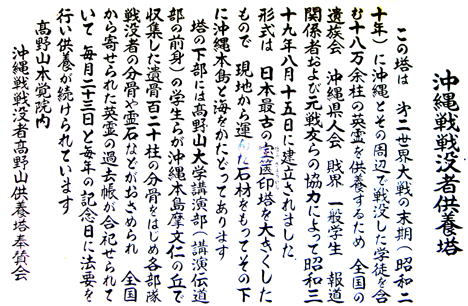 沖縄戦戦没者供養塔
この塔は 㐧二世界大戦の末期(昭和二
十年)に沖縄とその周辺で戦没した学徒を含
む十八万余柱の英霊を供養するため 全国の
遺族会 沖縄県人会 財界 一般学生 報道
関係者および元戦友らの協力によって昭和三
十九年八月十五日に建立されました
形式は 日本最古の宝篋印塔を大きくした
もので 現地から運んだ石材をもってその下
に沖縄本島と海をかたどってあります
塔の下部には高野山大学講演部(講演伝道
部の前身)の学生らが沖縄本島摩文仁の丘で
収集した遺骨百二十柱の分骨をはじめ各部隊
戦没者の分骨や霊石などがおさめられ 全国
から寄せられた英霊の過去帳が合祀せられて
いて 毎月二十三日と毎年の記念日に法要を
行い供養が続けられています
高野山本覚院内
沖縄戦戦没者高野山供養塔奉賛会